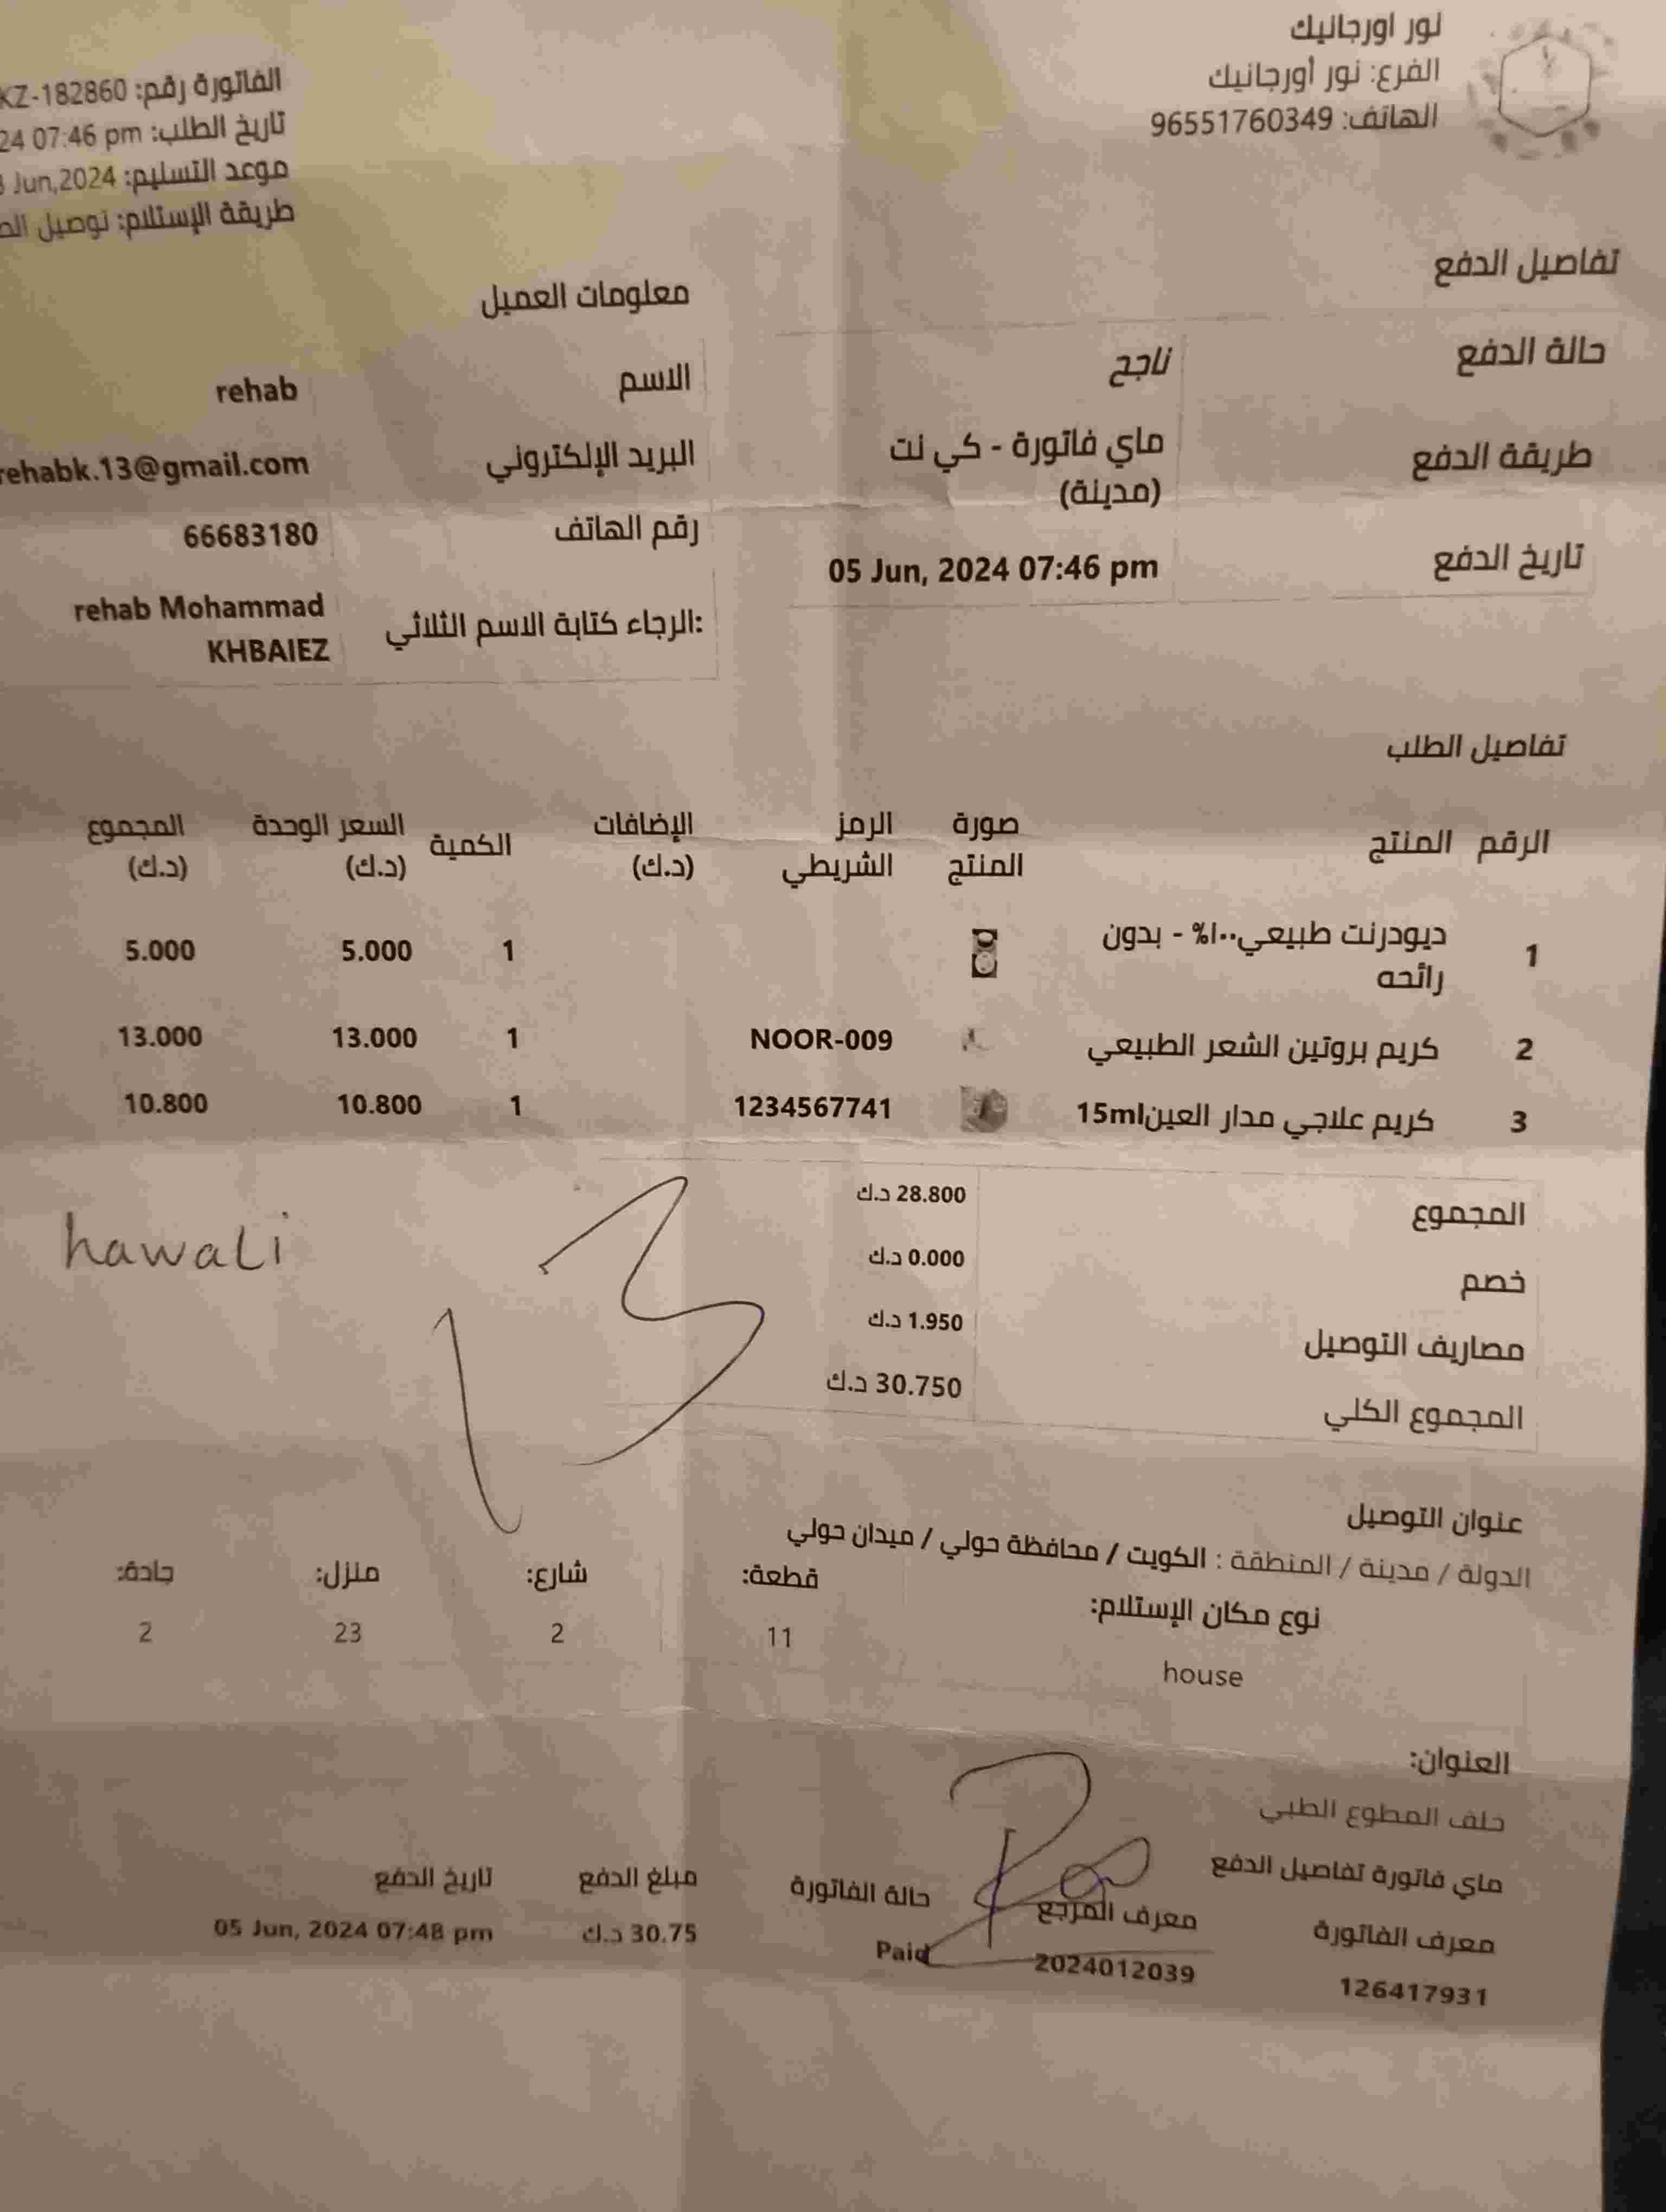 نور اورجانيك
الفرع: نور أورجانيك
الهاتف: 96551760349
الفاتورة رقم: KZ-182860
تاريخ الطلب: 24 07:46 pm
موعد التسليم: Jun,2024
طريقة الإستلام: توصيل
تفاصيل الدفع
حالة الدفع ناجح
طريقة الدفع ماي فاتورة - كي نت
(مدينة)
تاريخ الدفع 05 Jun, 2024 07:46 pm
معلومات العميل
الاسم rehab
البريد الإلكتروني rehabk.13@gmail.com
رقم الهاتف 66683180
الرجاء كتابة الاسم الثلاثي: rehab Mohammad
KHBAIEZ
تفاصيل الطلب
الرقم المنتج صورة المنتج الرمز الشريطي الإضافات (د.ك) الكمية السعر الوحدة (د.ك) المجموع (د.ك)
1 ديودرنت طبيعي١٠٠% - بدون رائحه 1 5.000 5.000
2 كريم بروتين الشعر الطبيعي NOOR-009 1 13.000 13.000
3 كريم علاجي مدار العين15ml 1234567741 1 10.800 10.800
المجموع 28.800 د.ك
خصم 0.000 د.ك
مصاريف التوصيل 1.950 د.ك
المجموع الكلي 30.750 د.ك
hawali
13
عنوان التوصيل
الدولة / مدينة / المنطقة : الكويت / محافظة حولي / ميدان حولي
نوع مكان الإستلام: قطعة: شارع: منزل: جادة:
house 11 2 23 2
العنوان:
خلف المطوع الطبي
ماي فاتورة تفاصيل الدفع
معرف الفاتورة معرف المرجع حالة الفاتورة مبلغ الدفع تاريخ الدفع
126417931 2024012039 Paid 30.75 د.ك 05 Jun, 2024 07:48 pm